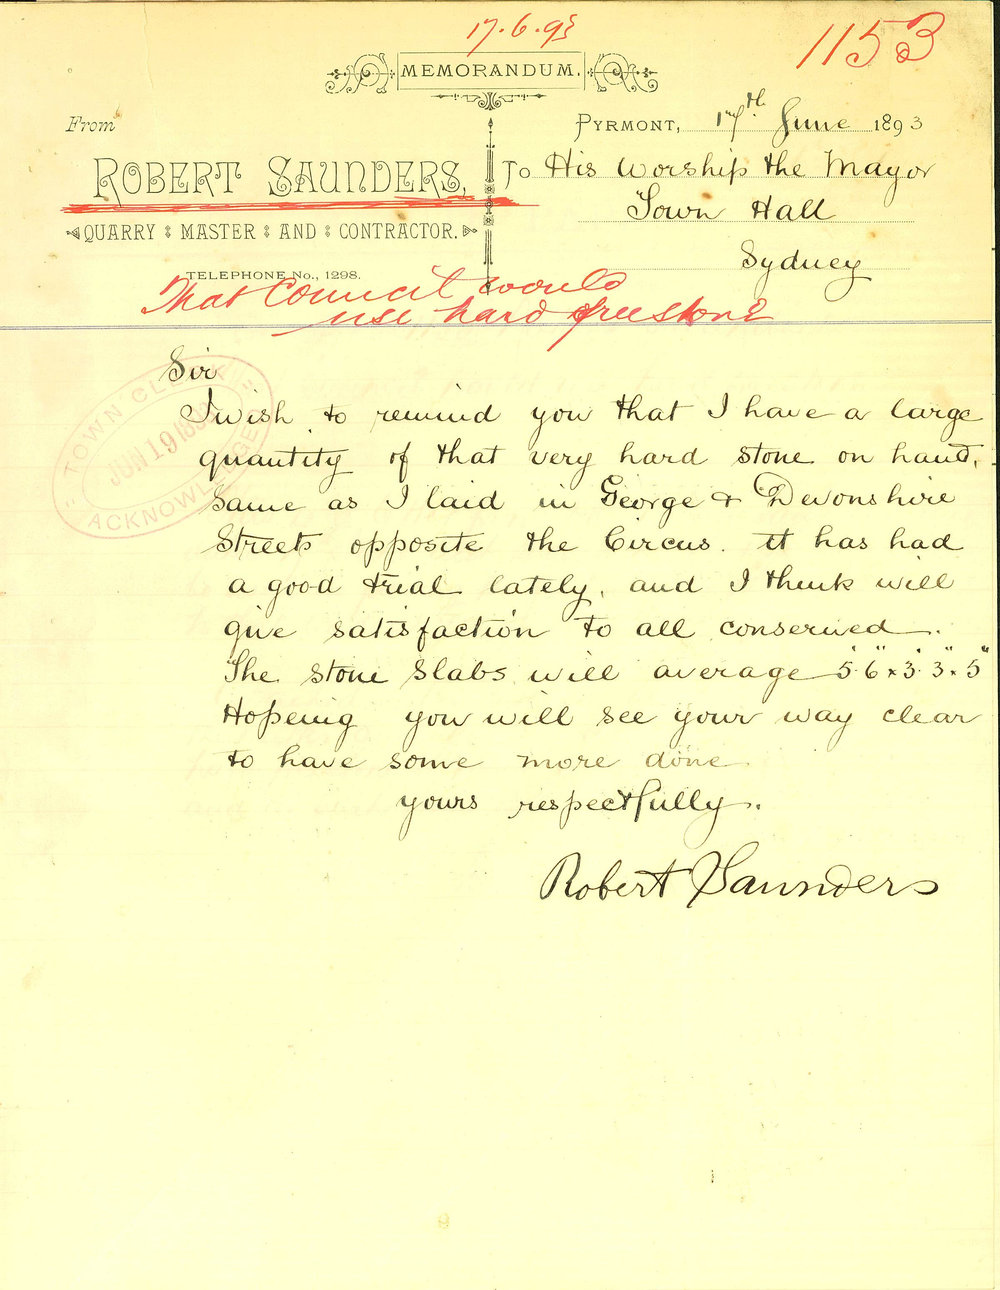 17.6.93
1153
MEMORANDUM.
From
PYRMONT, 17th June 1893
ROBERT SAUNDERS,
To His Worship the Mayor
Town Hall
QUARRY MASTER AND CONTRACTOR.
Sydney
TELEPHONE No., 1298.
That Council would
use hard freestone
Sir
TOWN CLERK
JUN 19 189
ACKNOWLEDGED
I wish to remind you that I have a large
quantity of that very hard stone on hand,
same as I laid in George & Devonshire
Streets opposite the Circus. it has had
a good trial lately, and I think will
give satisfaction to all conserned.
The stone slabs will average 5'.6" x 3'.3" x 5"
Hopeing you will see your way clear
to have some more done
yours respectfully.
Robert Saunders